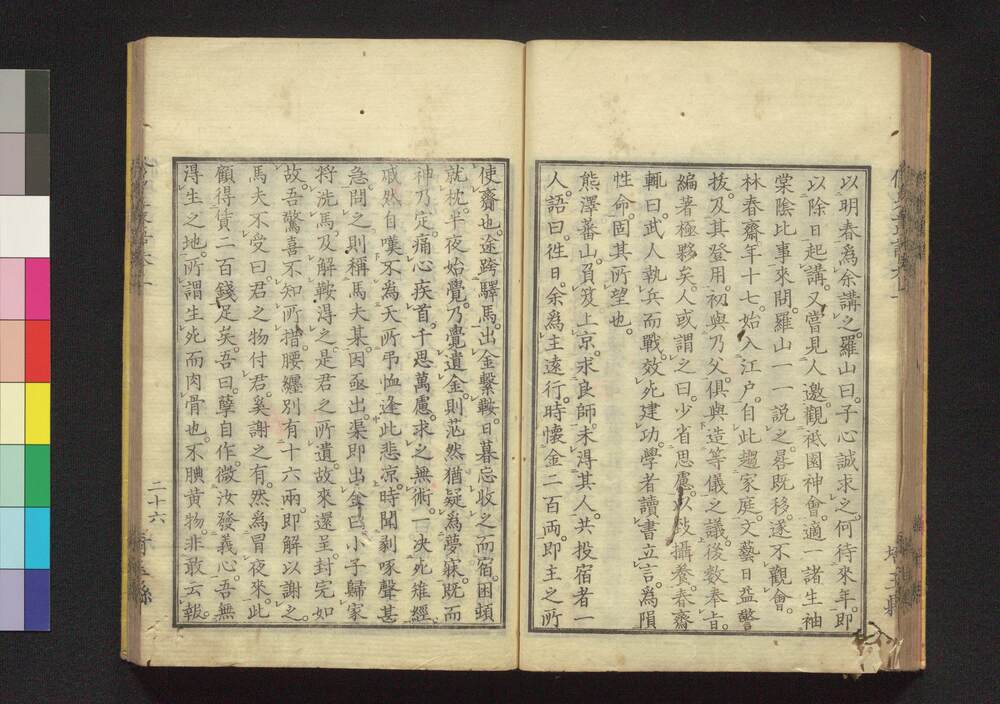 以明春為余講之羅山曰子心誠求之何待來年即
以除日起講又嘗見人邀觀祇園神會適一諸生袖
棠陰比事來問羅山一一說之晷既移遂不觀會
林春齋年十七始入江戶自此趨家庭文藝日益警
拔及其登用初與乃父俱與造等儀之議後數奉旨
編著極夥矣人或謂之曰少省思慮以攷攝養春齋
輒曰武人執兵而戰效死建功學者讀書立言為隕
性命固其所望也
熊澤蕃山負笈上京求良師未得其人共投宿者一
人語曰往日余為主遠行時懷金二百両即主之所
使齎也途跨驛馬出金繫鞍日暮忘收之而宿困頓
就枕半夜始覺乃覺遺金則茫然猶疑為夢寐既而
神乃定痛心疾首千思萬慮求之無術一決死雉經
戚然自嘆不為天所弔恤逢此悲凉時聞剝啄聲甚
急問之則稱馬夫某因亟出渠即出金曰小子歸家
将洗馬及解鞍得之是君之所遺故來還呈封完如
故吾驚喜不知所措腰纏別有十六兩即解以謝之
馬夫不受曰君之物付君奚謝之有然為冒夜來此
顧得賃二百錢足矣吾曰孽自作微汝發義心吾無
得生之地所謂生死而肉骨也不腆黄物非敢云報
二十六